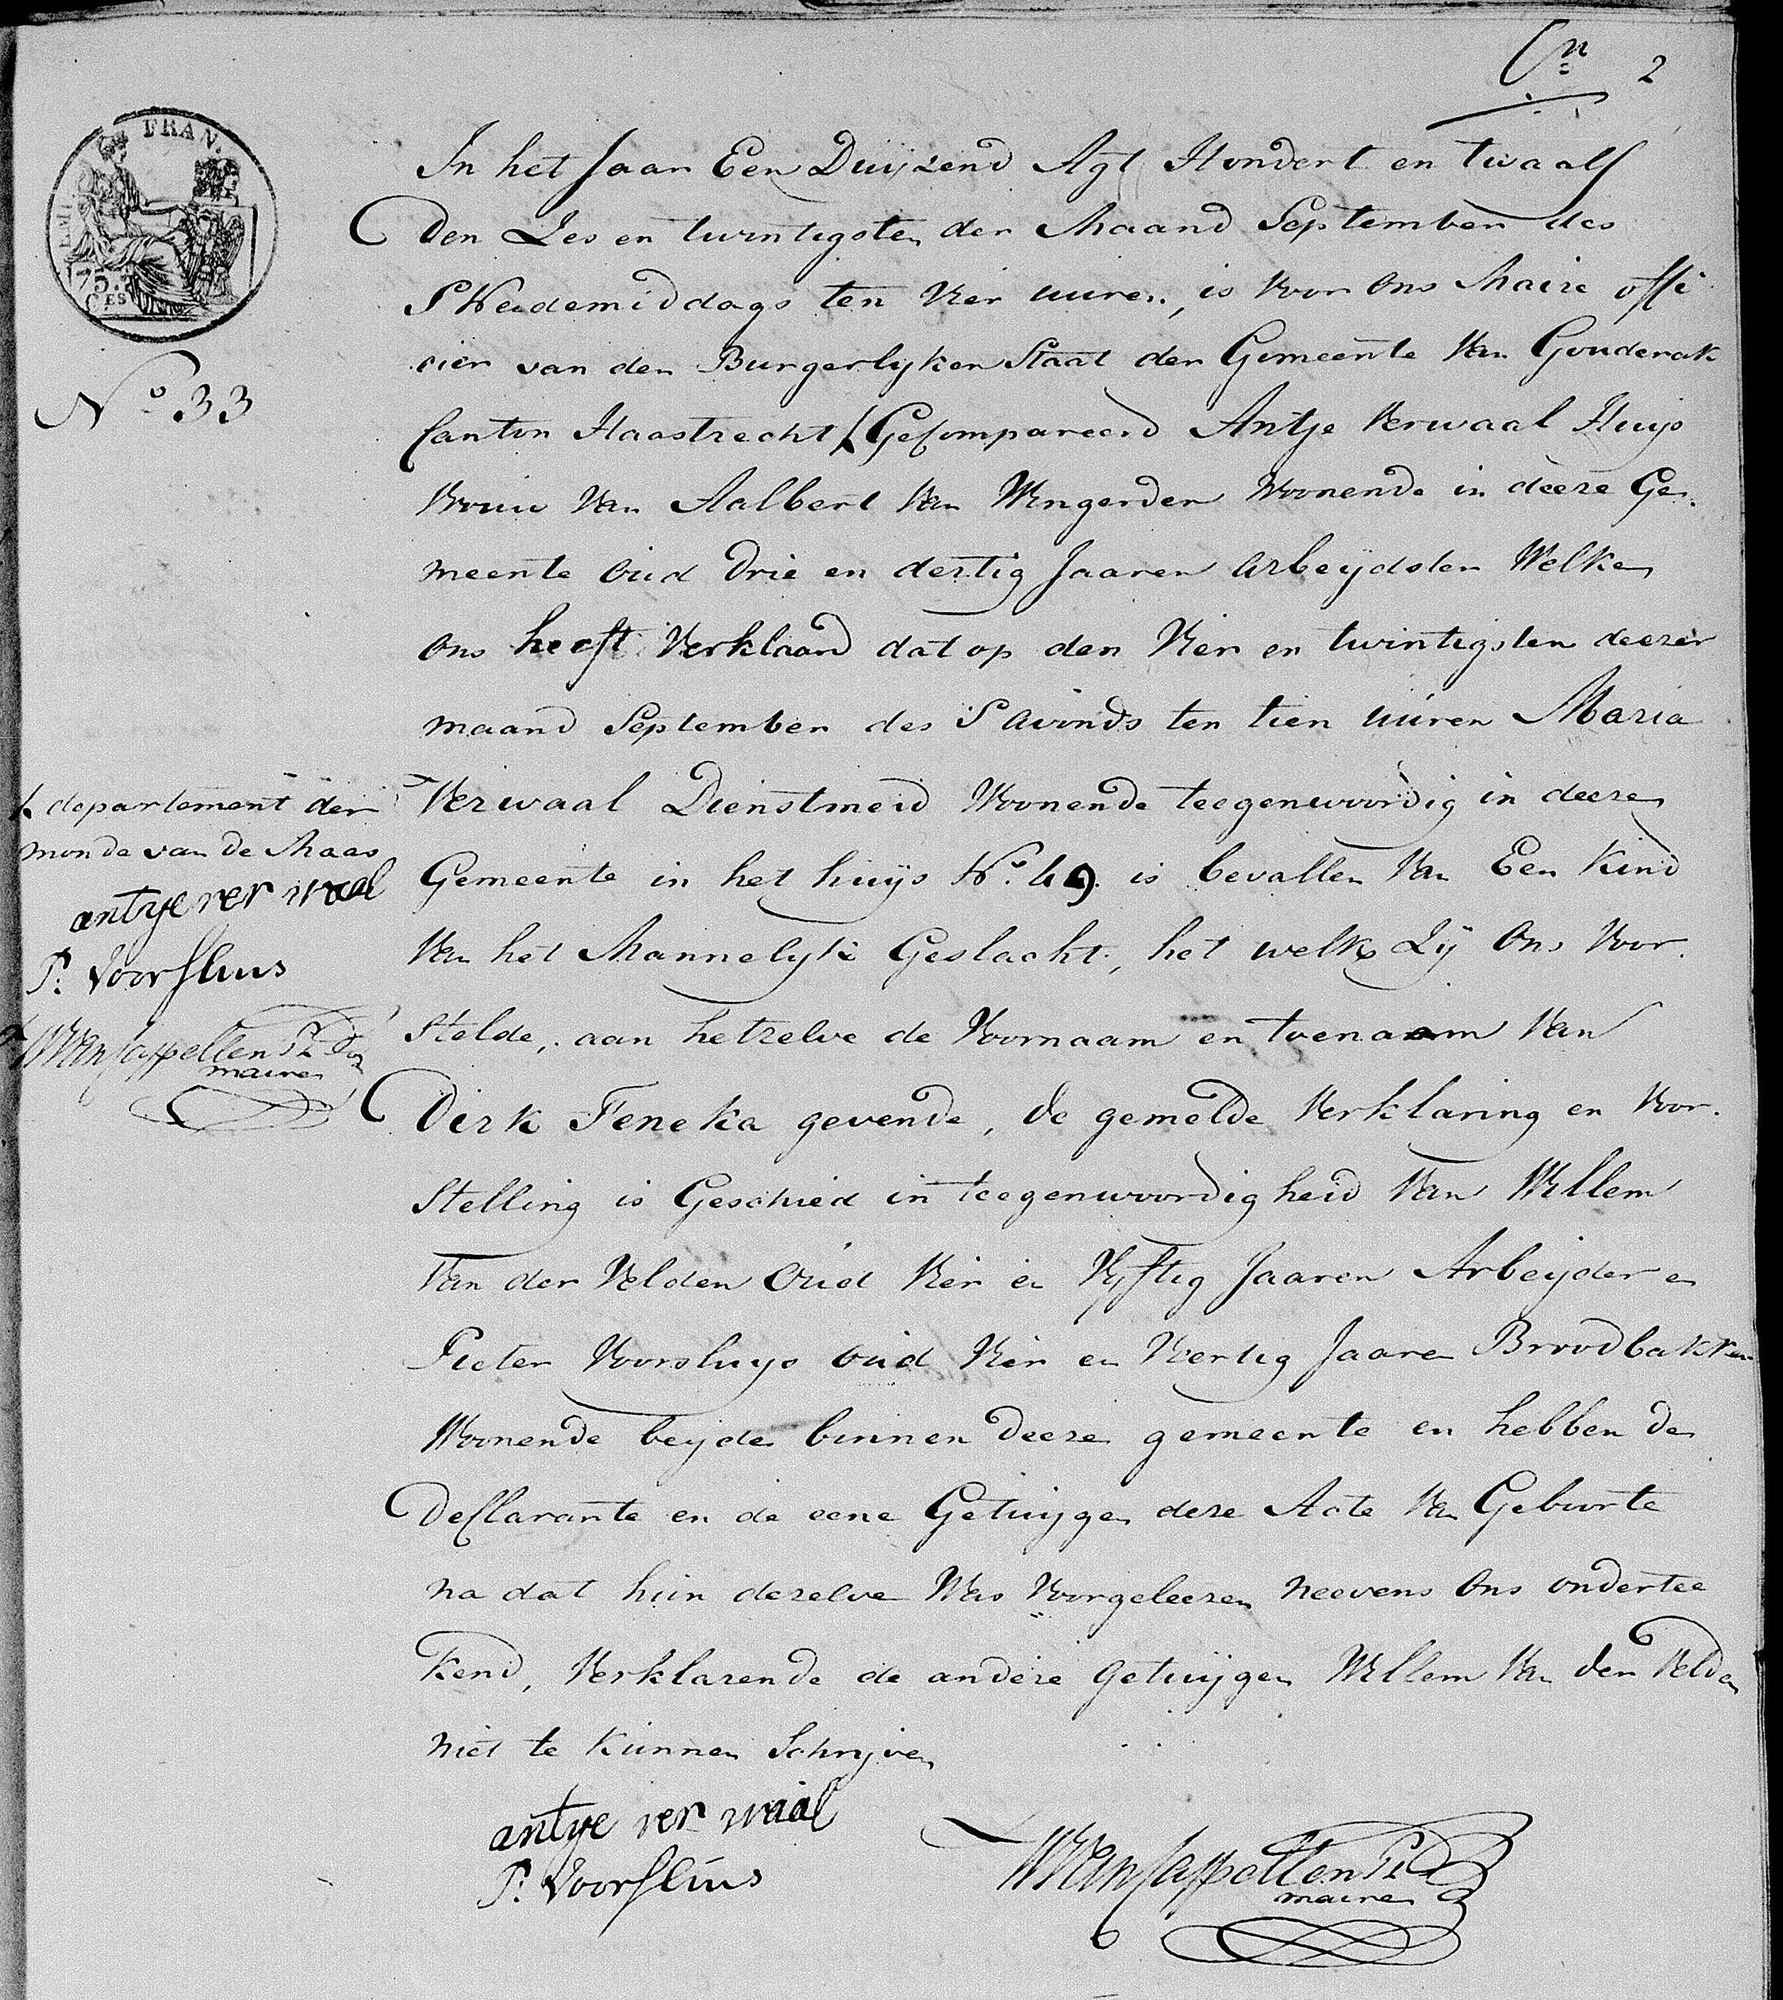 Cn 2
FRAN.
75.
CES
No 33
In het Jaar Een Duijzend Agt Hondert en twaalf
Den Zes en twintigsten der Maand September des
S Nademiddags ten vier uuren, is voor ons Maire offi
cier van den Burgerlyken Staat der Gemeente van Gouderak
Canton Haastrecht Gecompareerd Antje Verwaal Huijs
vrouw van Aalbert van Wingerden Woonende in deeze Ge
meente oud drie en dertig Jaaren arbeijdster Welke
ons heeft Verklaard dat op den Vier en twintigsten deezer
maand September des S avonds ten tien uuren Maria
Verwaal Dienstmeid Woonende teegenwoordig in deeze
Gemeente in het huijs No. 49. is bevallen van Een Kind
van het Mannelyk Geslacht, het welk Zy Ons Voor
Stelde, aan hetzelve de Voornaam en toenaam van
Dirk Feneka gevende, de gemelde Verklaring en Voor.
Stelling is Geschied in teegenwoordigheid van Willem
van der Velden Oud Vier en Vyftig Jaaren Arbeijder en
Pieter Voorsluys oud Vier en Veertig Jaaren Broodbakker
Woonende beijde binnen deeze gemeente en hebben de
Declarante en de eene Getuijgen deze Acte van Geboorte
na dat hun dezelve Was Voorgeleezen neevens ons ondertee
kend, Verklarende de andere getuijgen Willem van den Velden
niet te kunnen Schryven
antye ver waal
P. Voorsluus
W Van Cappellen
maire
departement der
monde van de Maas
antye ver waal
P. Voorsluus
W Van Cappellen
maire